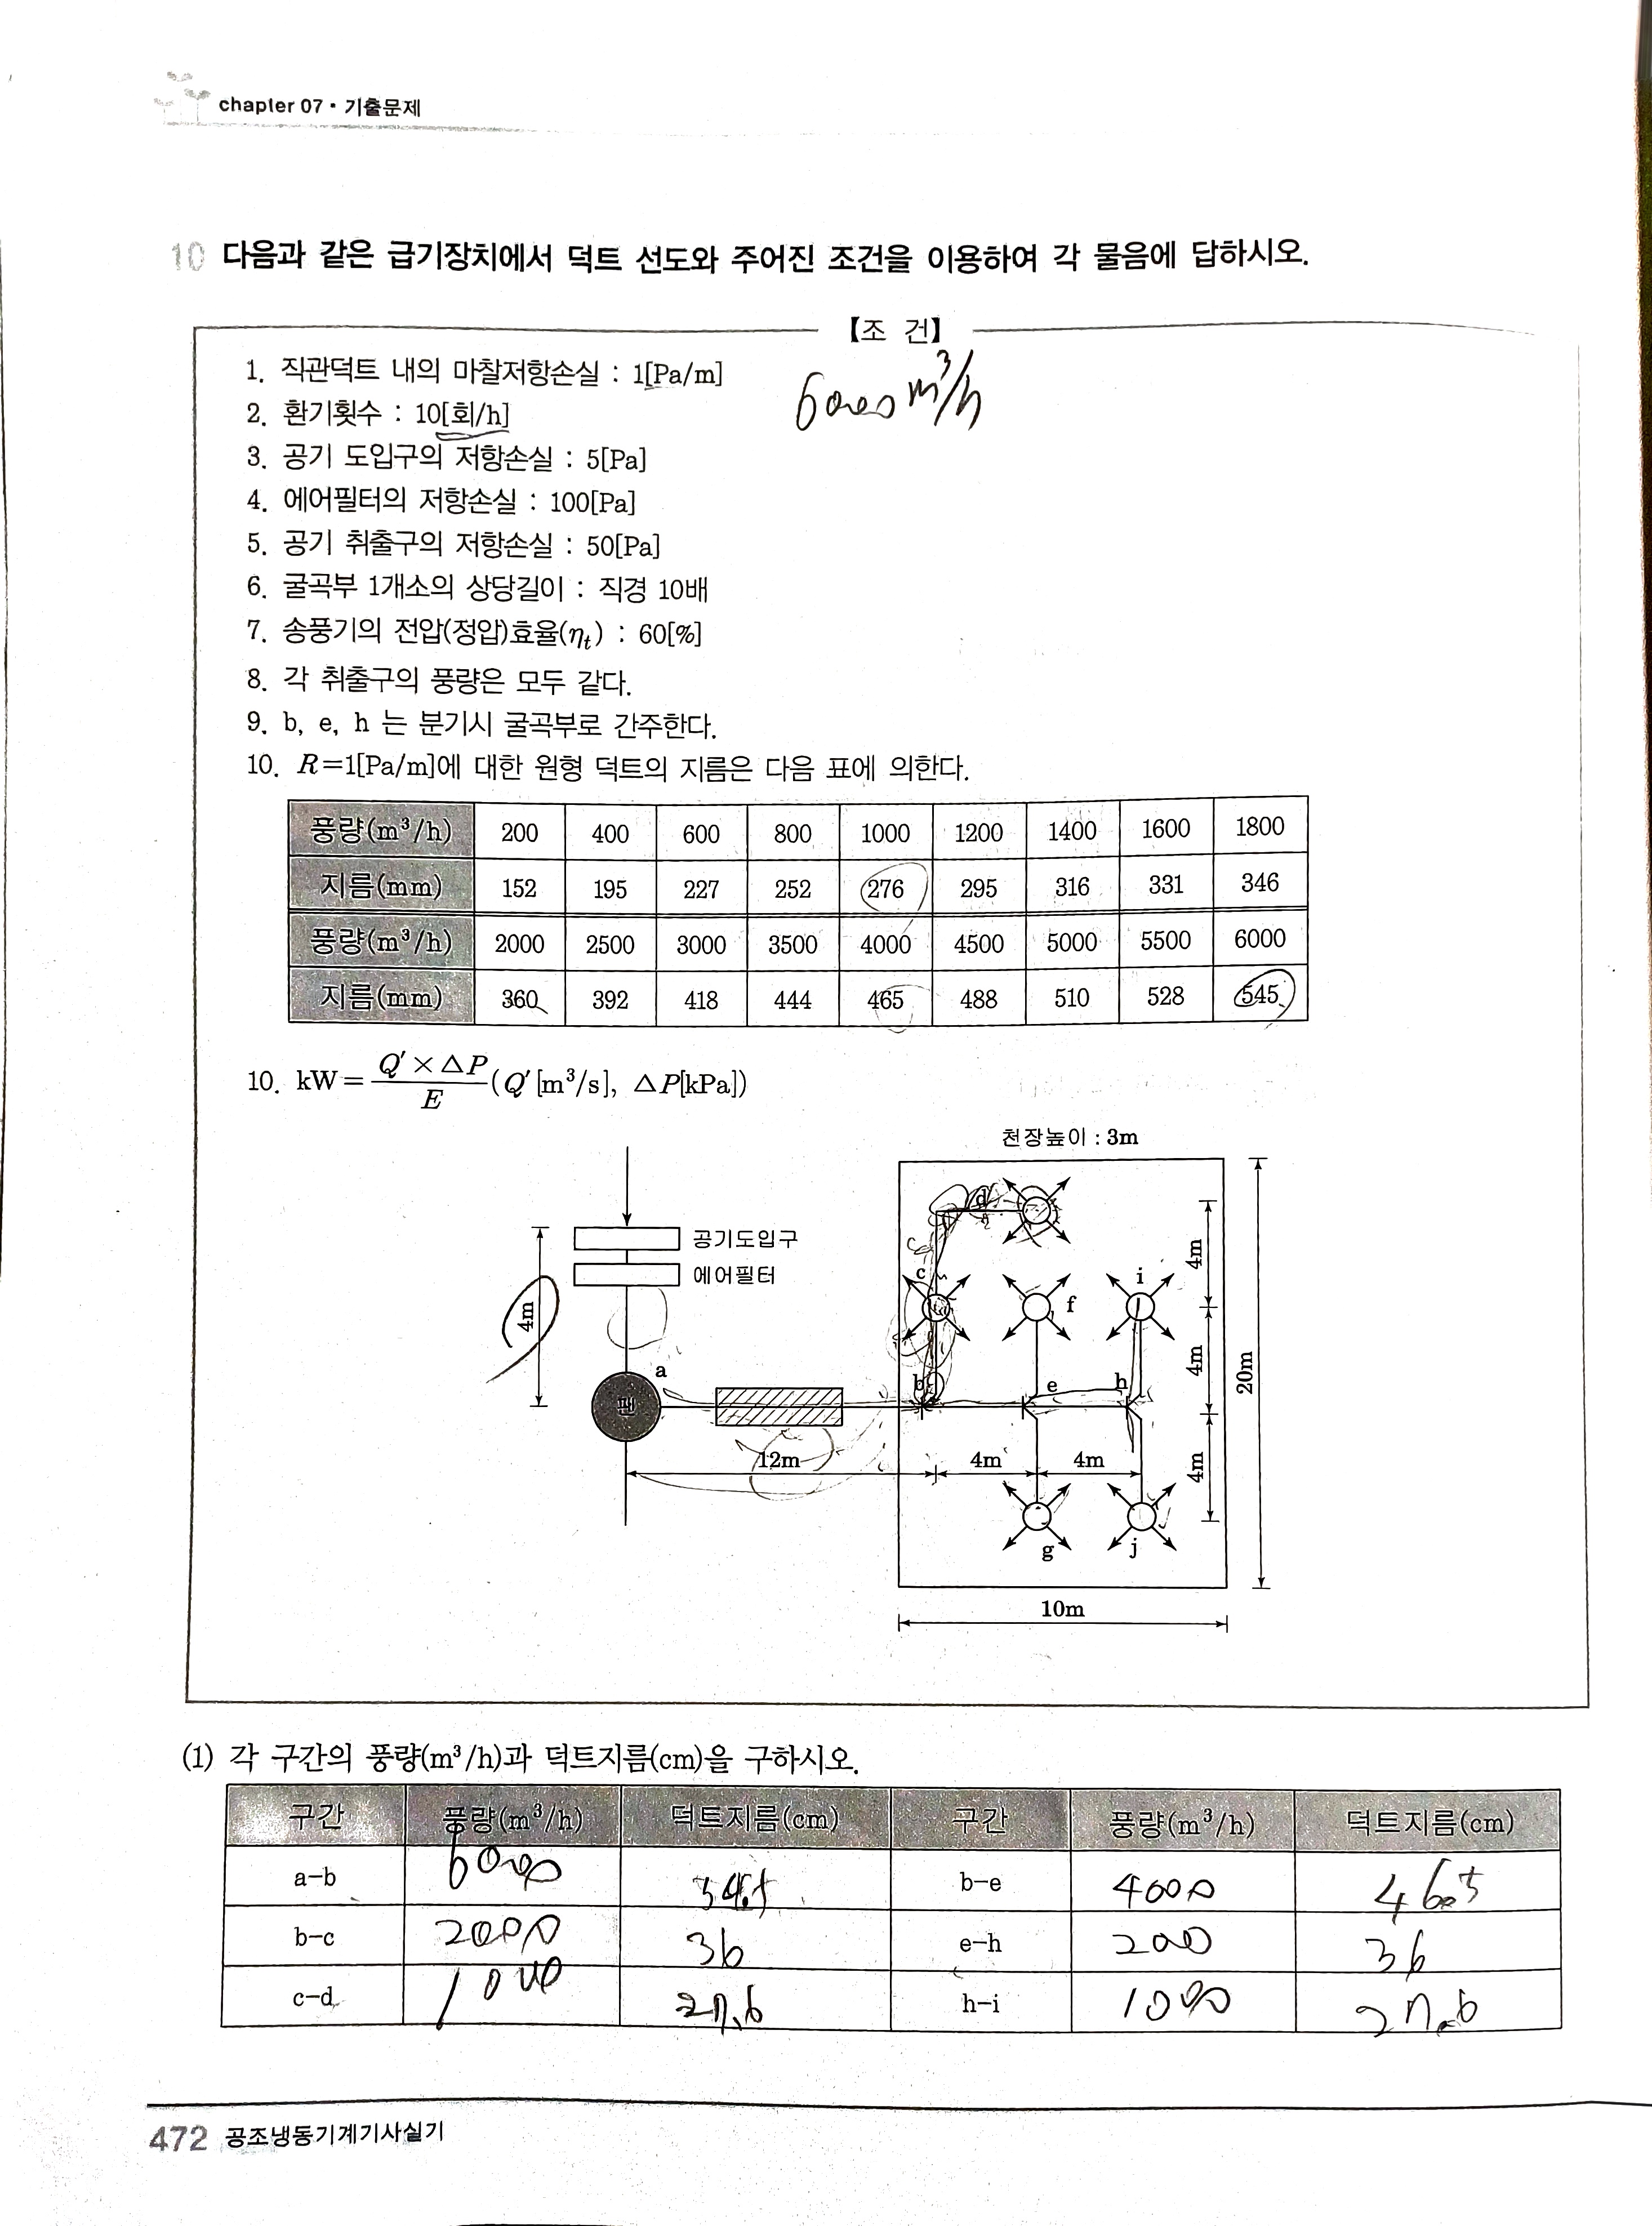 chapter 07 • 기출문제
10 다음과 같은 급기장치에서 덕트 선도와 주어진 조건을 이용하여 각 물음에 답하시오.
【조 건】
1. 직관덕트 내의 마찰저항손실 : 1[Pa/m]
6000 m³/h
2. 환기횟수 : 10[회/h]
3. 공기 도입구의 저항손실 : 5[Pa]
4. 에어필터의 저항손실 : 100[Pa]
5. 공기 취출구의 저항손실 : 50[Pa]
6. 굴곡부 1개소의 상당길이 : 직경 10배
7. 송풍기의 전압(정압)효율(ηt) : 60[%]
8. 각 취출구의 풍량은 모두 같다.
9. b, e, h 는 분기시 굴곡부로 간주한다.
10. R=1[Pa/m]에 대한 원형 덕트의 지름은 다음 표에 의한다.
풍량(m³/h) 200 400 600 800 1000 1200 1400 1600 1800
지름(mm) 152 195 227 252 276 295 316 331 346
풍량(m³/h) 2000 2500 3000 3500 4000 4500 5000 5500 6000
지름(mm) 360 392 418 444 465 488 510 528 545
10. kW = Q′ × △P / E (Q′ [m³/s], △P[kPa])
천장높이 : 3m
d
공기도입구
c
4m
에어필터
i
f
4m
4m
a
b
e
h
20m
팬
12m
4m
4m
4m
g
j
10m
(1) 각 구간의 풍량(m³/h)과 덕트지름(cm)을 구하시오.
구간 풍량(m³/h) 덕트지름(cm) 구간 풍량(m³/h) 덕트지름(cm)
a-b 6000 b-e 4000 46.5
b-c 2000 36 e-h 2000 36
c-d 1000 27.6 h-i 1000 27.6
472 공조냉동기계기사실기